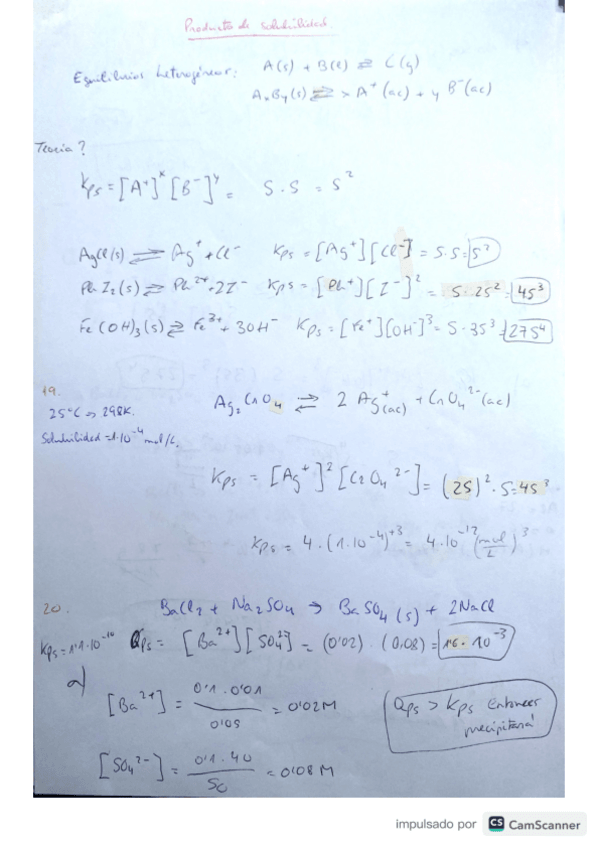 Producto de solubilidad.
Equilibrios heterogéneos: A(s) + B(l) ⇌ C(g)
AxBy(s) ⇌ x A⁺(ac) + y B⁻(ac)
Teoría?
Kps = [A⁺]ˣ [B⁻]ʸ = S·S = S²
AgCl(s) ⇌ Ag⁺ + Cl⁻ Kps = [Ag⁺][Cl⁻] = S·S = S²
PbI₂(s) ⇌ Pb²⁺ + 2I⁻ Kps = [Pb⁺][I⁻]² = S·2S² = 4S³
Fe(OH)₃(s) ⇌ Fe³⁺ + 3OH⁻ Kps = [Fe⁺][OH⁻]³ = S·3S³ = 27S⁴
19.
25°C => 298K.
Solubilidad = 1·10⁻⁴ mol/L.
Ag₂CrO₄ ⇌ 2 Ag⁺(ac) + CrO₄²⁻(ac)
Kps = [Ag⁺]² [CrO₄²⁻] = (2S)²·S = 4S³
Kps = 4·(1·10⁻⁴)⁺³ = 4·10⁻¹² (mol/L)³
20.
BaCl₂ + Na₂SO₄ → BaSO₄(s) + 2NaCl
Kps = 1'1·10⁻¹⁰ Qps = [Ba²⁺][SO₄²⁻] = (0'02)·(0,08) = 1'6·10⁻³
a)
[Ba²⁺] = 0'1·0'01 / 0'05 = 0'02M
Qps > Kps Entonces
precipitará!
[SO₄²⁻] = 0'1·40 / 50 = 0'08M
impulsado por CS CamScanner